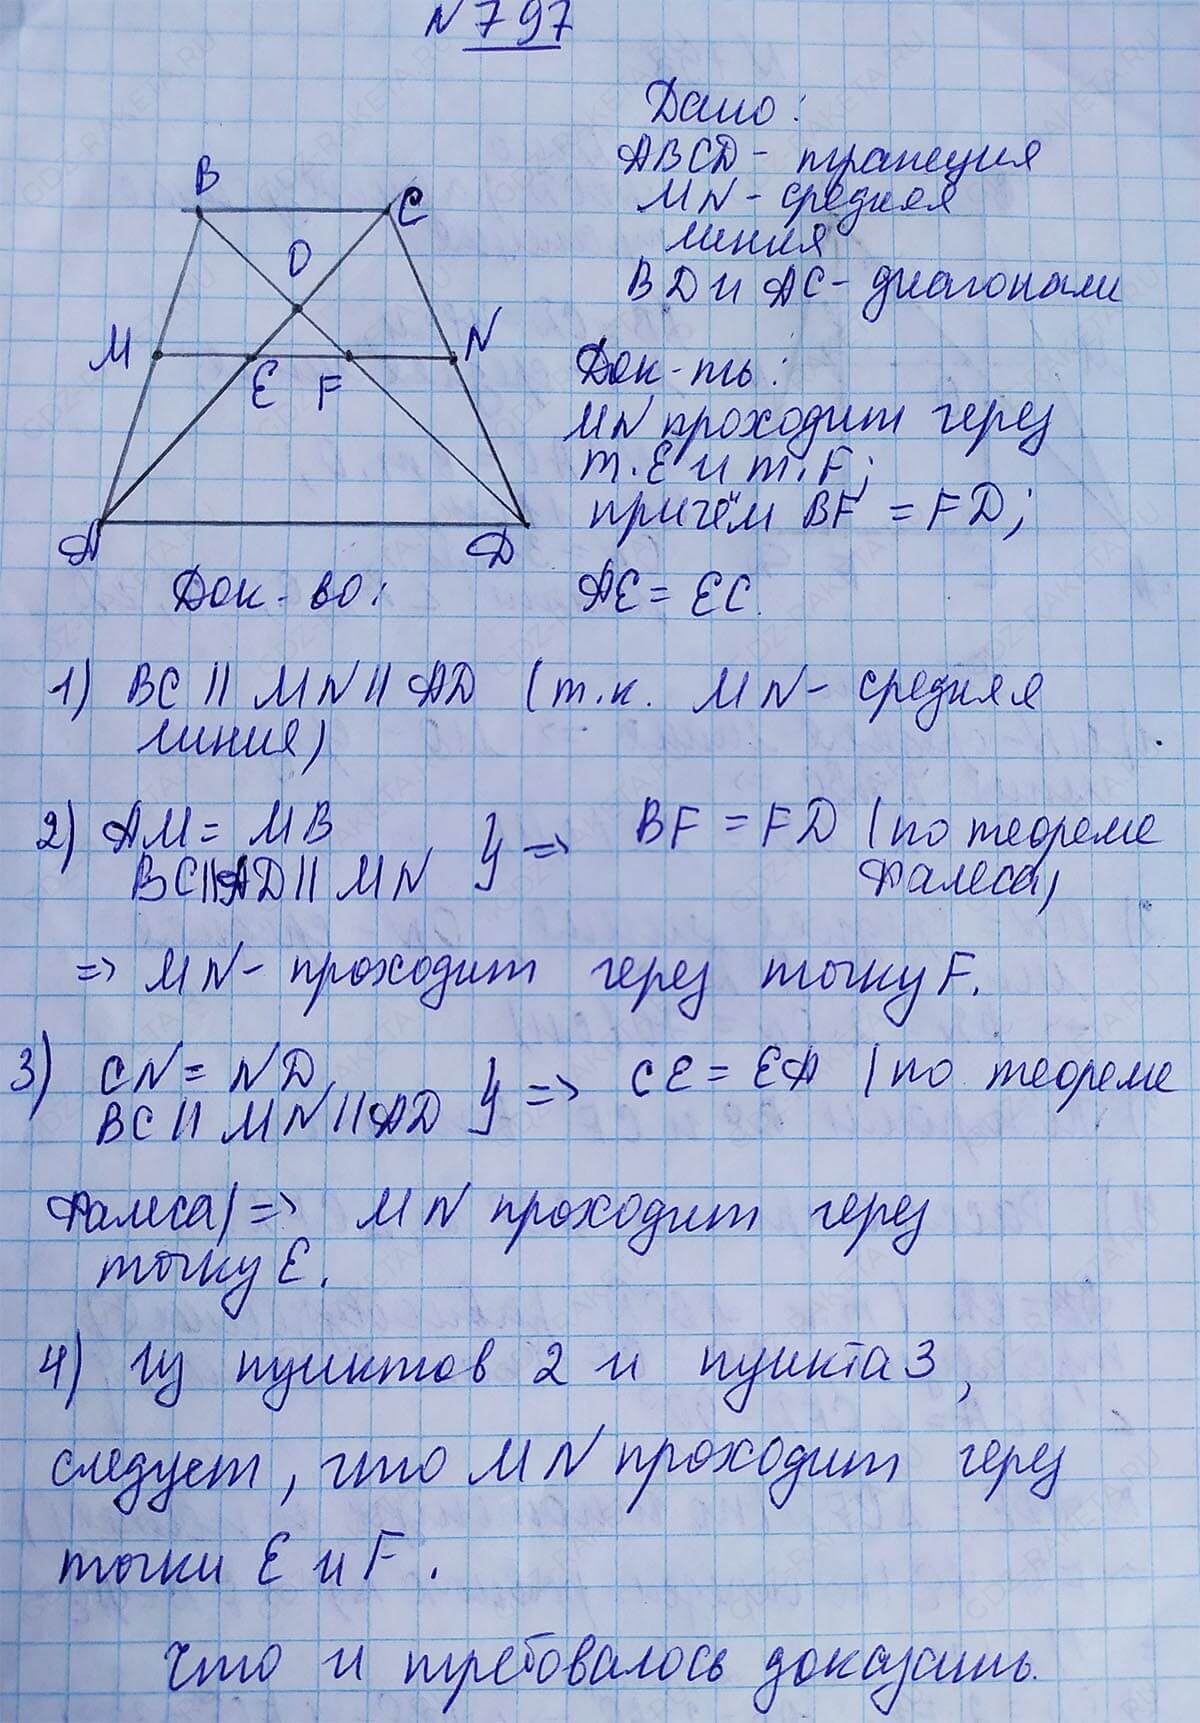 N 797
Дано:
ABCD - трапеция
MN - средняя
линия
BD и AC - диагонали
B
C
O
M
N
E
F
A
D
Док-ть:
MN проходит через
т. E и т. F;
причём BF = FD;
AE = EC.
Док-во:
1) BC || MN || AD (т.к. MN - средняя
линия)
2) AM = MB
BC || AD || MN } => BF = FD (по теореме
Фалеса)
=> MN - проходит через точку F.
3) CN = ND,
BC || MN || AD } => CE = EA (по теореме
Фалеса) => MN проходит через
точку E.
4) Из пунктов 2 и пункта 3,
следует, что MN проходит через
точки E и F.
Что и требовалось доказать.